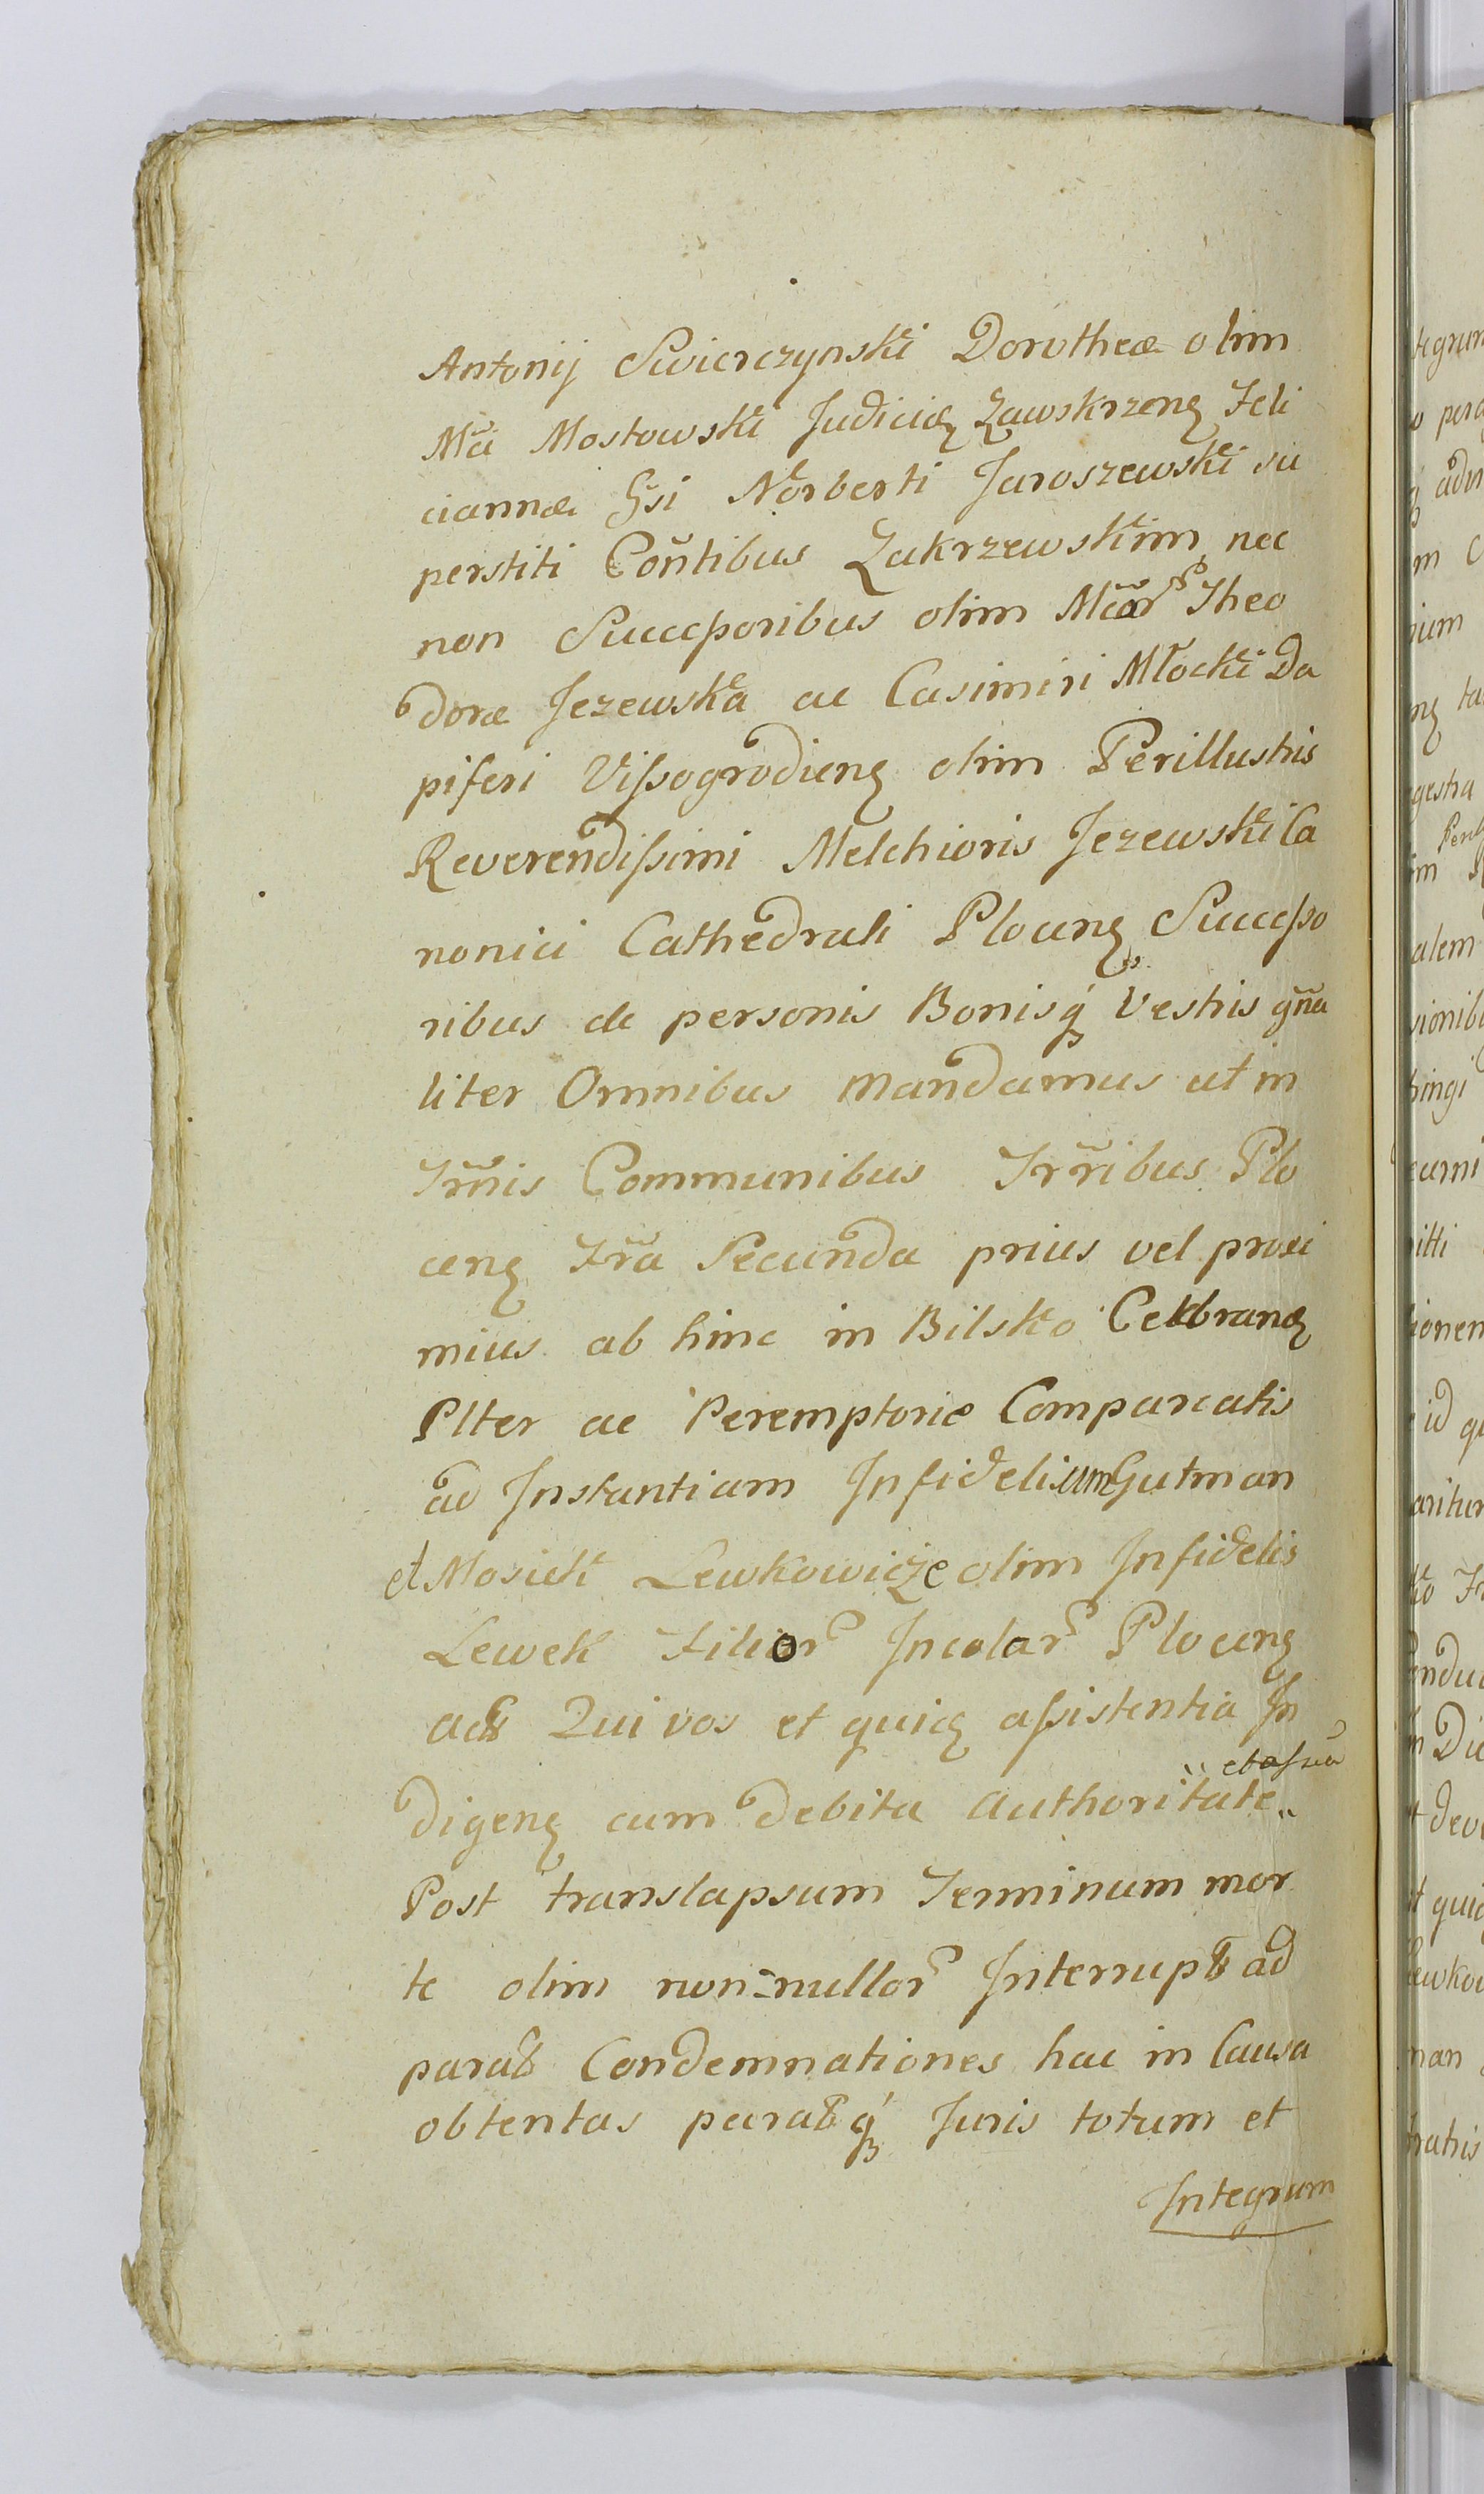 Antonij Swierczynski Dorotheæ olim
Mci Mostowski Judicis Zawskrzenς Feli
ciannæ Gsi Norberti Jaroszewski su
perstiti Contibus Zakrzewskim nec
non Successoribus olim Mcor Theo
doræ Jezewska ac Casimiri Młocki Da
piferi Vissogrodienς olim Perillustris
Reverendissimi Melchioris Jezewski Ca
nonici Cathedrali Plocenς Successo
ribus de personis Bonisq́ Vestris gña
liter Omnibus mandamus ut in
Trm̃is Communibus Trr̃ibus Plo
cenς Fr̃a Secunda prius vel proxi
mius ab hinc in Bilsko Celebranς
Plter ac Peremptorie Compareatis
ad Instantiam Infidelium Gutman
et Mosiek Lewkowicze olim Infidelis
Lewek Filior Incolar Plocenς
Act Qui vos et quicς assistentia In
digenς cum debita Authoritate
Post translapsum Terminum mor
te olim non=nullor Interrupt ad
parat Condemnationes hac in Causa
obtentas paratq́ Juris totum et
Integrum